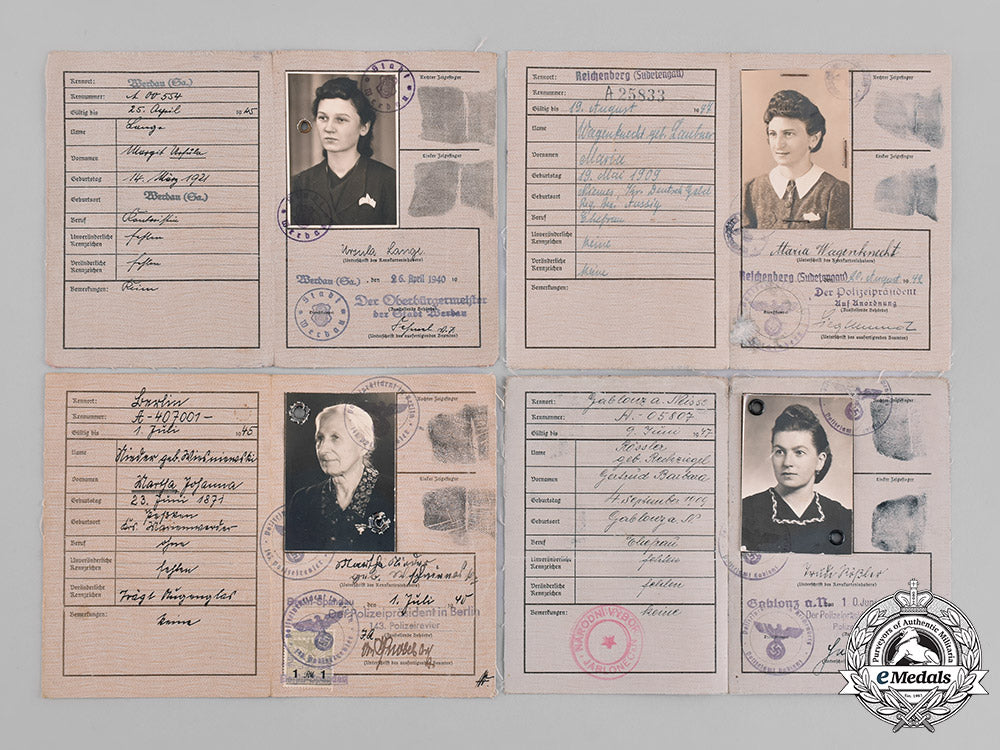 Kennort: Werdau (Sa.)
Kennnummer: A 00554
Gültig bis 25. April 1945
Name Lange
Vornamen Margit Ursula
Geburtstag 14. März 1921
Geburtsort Werdau (Sa.)
Beruf Kontoristin
Unveränderliche Kennzeichen fehlen
Veränderliche Kennzeichen fehlen
Bemerkungen: Keine
Rechter Zeigefinger
Linker Zeigefinger
Stadt Werdau
Ursula Lange
(Unterschrift des Kennkarteninhabers)
Werdau (Sa.), den 26. April 1940
Der Oberbürgermeister
der Stadt Werdau
(Ausstellende Behörde)
(Unterschrift des ausfertigenden Beamten)
Kennort: Reichenberg (Sudetengau)
Kennummer: A 25833
Gültig bis 19. August 1947
Name Wagenknecht geb. Taubner
Vornamen Marie
Geburtstag 19. Mai 1909
Geburtsort Niemes, Kr. Deutsch Gabel
Reg. Bez. Aussig
Beruf Ehefrau
Unveränderliche Kennzeichen keine
Veränderliche Kennzeichen keine
Bemerkungen:
Rechter Zeigefinger
Linker Zeigefinger
Maria Wagenknecht
(Unterschrift des Kennkarteninhabers)
Reichenberg (Sudetengau) 20. August 1942
Der Polizeipräsident
Auf Anordnung
(Ausstellende Behörde)
(Unterschrift des ausfertigenden Beamten)
Kennort: Berlin
Kennummer: A-407001-
Gültig bis 1. Juli 1945
Name Nieder geb. Wisniewski
Vornamen Martha, Johanna
Geburtstag 23. Juni 1871
Geburtsort
Krs. Marienwerder
Beruf ohne
Unveränderliche Kennzeichen fehlen
Veränderliche Kennzeichen Trägt Augenglas
Bemerkungen: keine
Rechter Zeigefinger
Linker Zeigefinger
Martha Nieder
geb.
(Unterschrift des Kennkarteninhabers)
den 1. Juli 1940
Der Polizeipräsident in Berlin
143. Polizeirevier
(Ausstellende Behörde)
(Unterschrift des ausfertigenden Beamten)
1 RM 1
Kennort: Gablonz a. Neisse
Kennummer: A.-05807
Gültig bis 9. Juni 1947
Name Rössler
geb. Reckziegel
Vornamen Gertrud Barbara
Geburtstag 4. September 1919
Geburtsort Gablonz a. N.
Beruf Ehefrau
Unveränderliche Kennzeichen fehlen
Veränderliche Kennzeichen fehlen
Bemerkungen: keine
NÁRODNÍ VÝBOR JABLONEC
Rechter Zeigefinger
Linker Zeigefinger
Trude Rößler
(Unterschrift des Kennkarteninhabers)
Gablonz a.N., 10. Juni
Der Polizei
Purveyors of Authentic Militaria
eMedals
Est. 1967